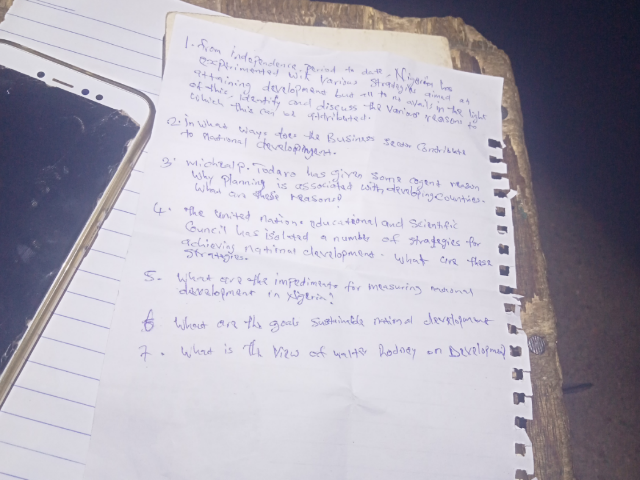 1. From independence period to date, Nigeria has
experimented with various strategies aimed at
attaining development but all to no avail. in the light
of this, identify and discuss the various reasons to
which this can be attributed.
2. In what ways does the Business Contribute
to National development.
3. Micheal P. Todaro has given some cogent reason
Why planning is associated with developing Countries.
What are these reasons?
4. The united nations educational and Scientific
Council has isolated a number of strategies for
achieving national development. What are these
Strategies.
5. What are the impediments for measuring
development in Nigeria?
6 What are the goals national development
7. What is The View of Rodney on Development